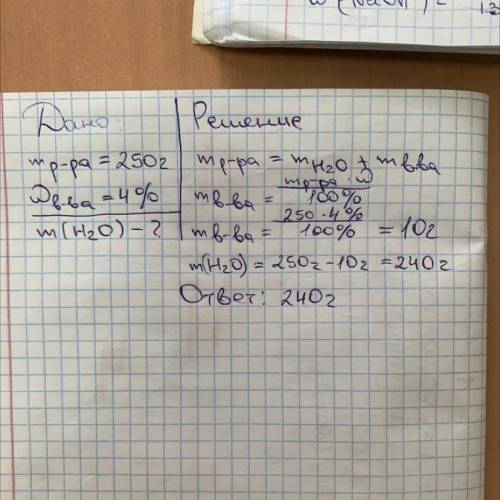 ω (NaOH) =
Дано:
mр-ра = 250г
ωв-ва = 4%
m(H2O) - ?
Решение
mр-ра = mH2O + mв-ва
mв-ва = mр-ра · ω / 100%
mв-ва = 250 · 4% / 100% = 10г
m(H2O) = 250г - 10г = 240г
Ответ: 240г